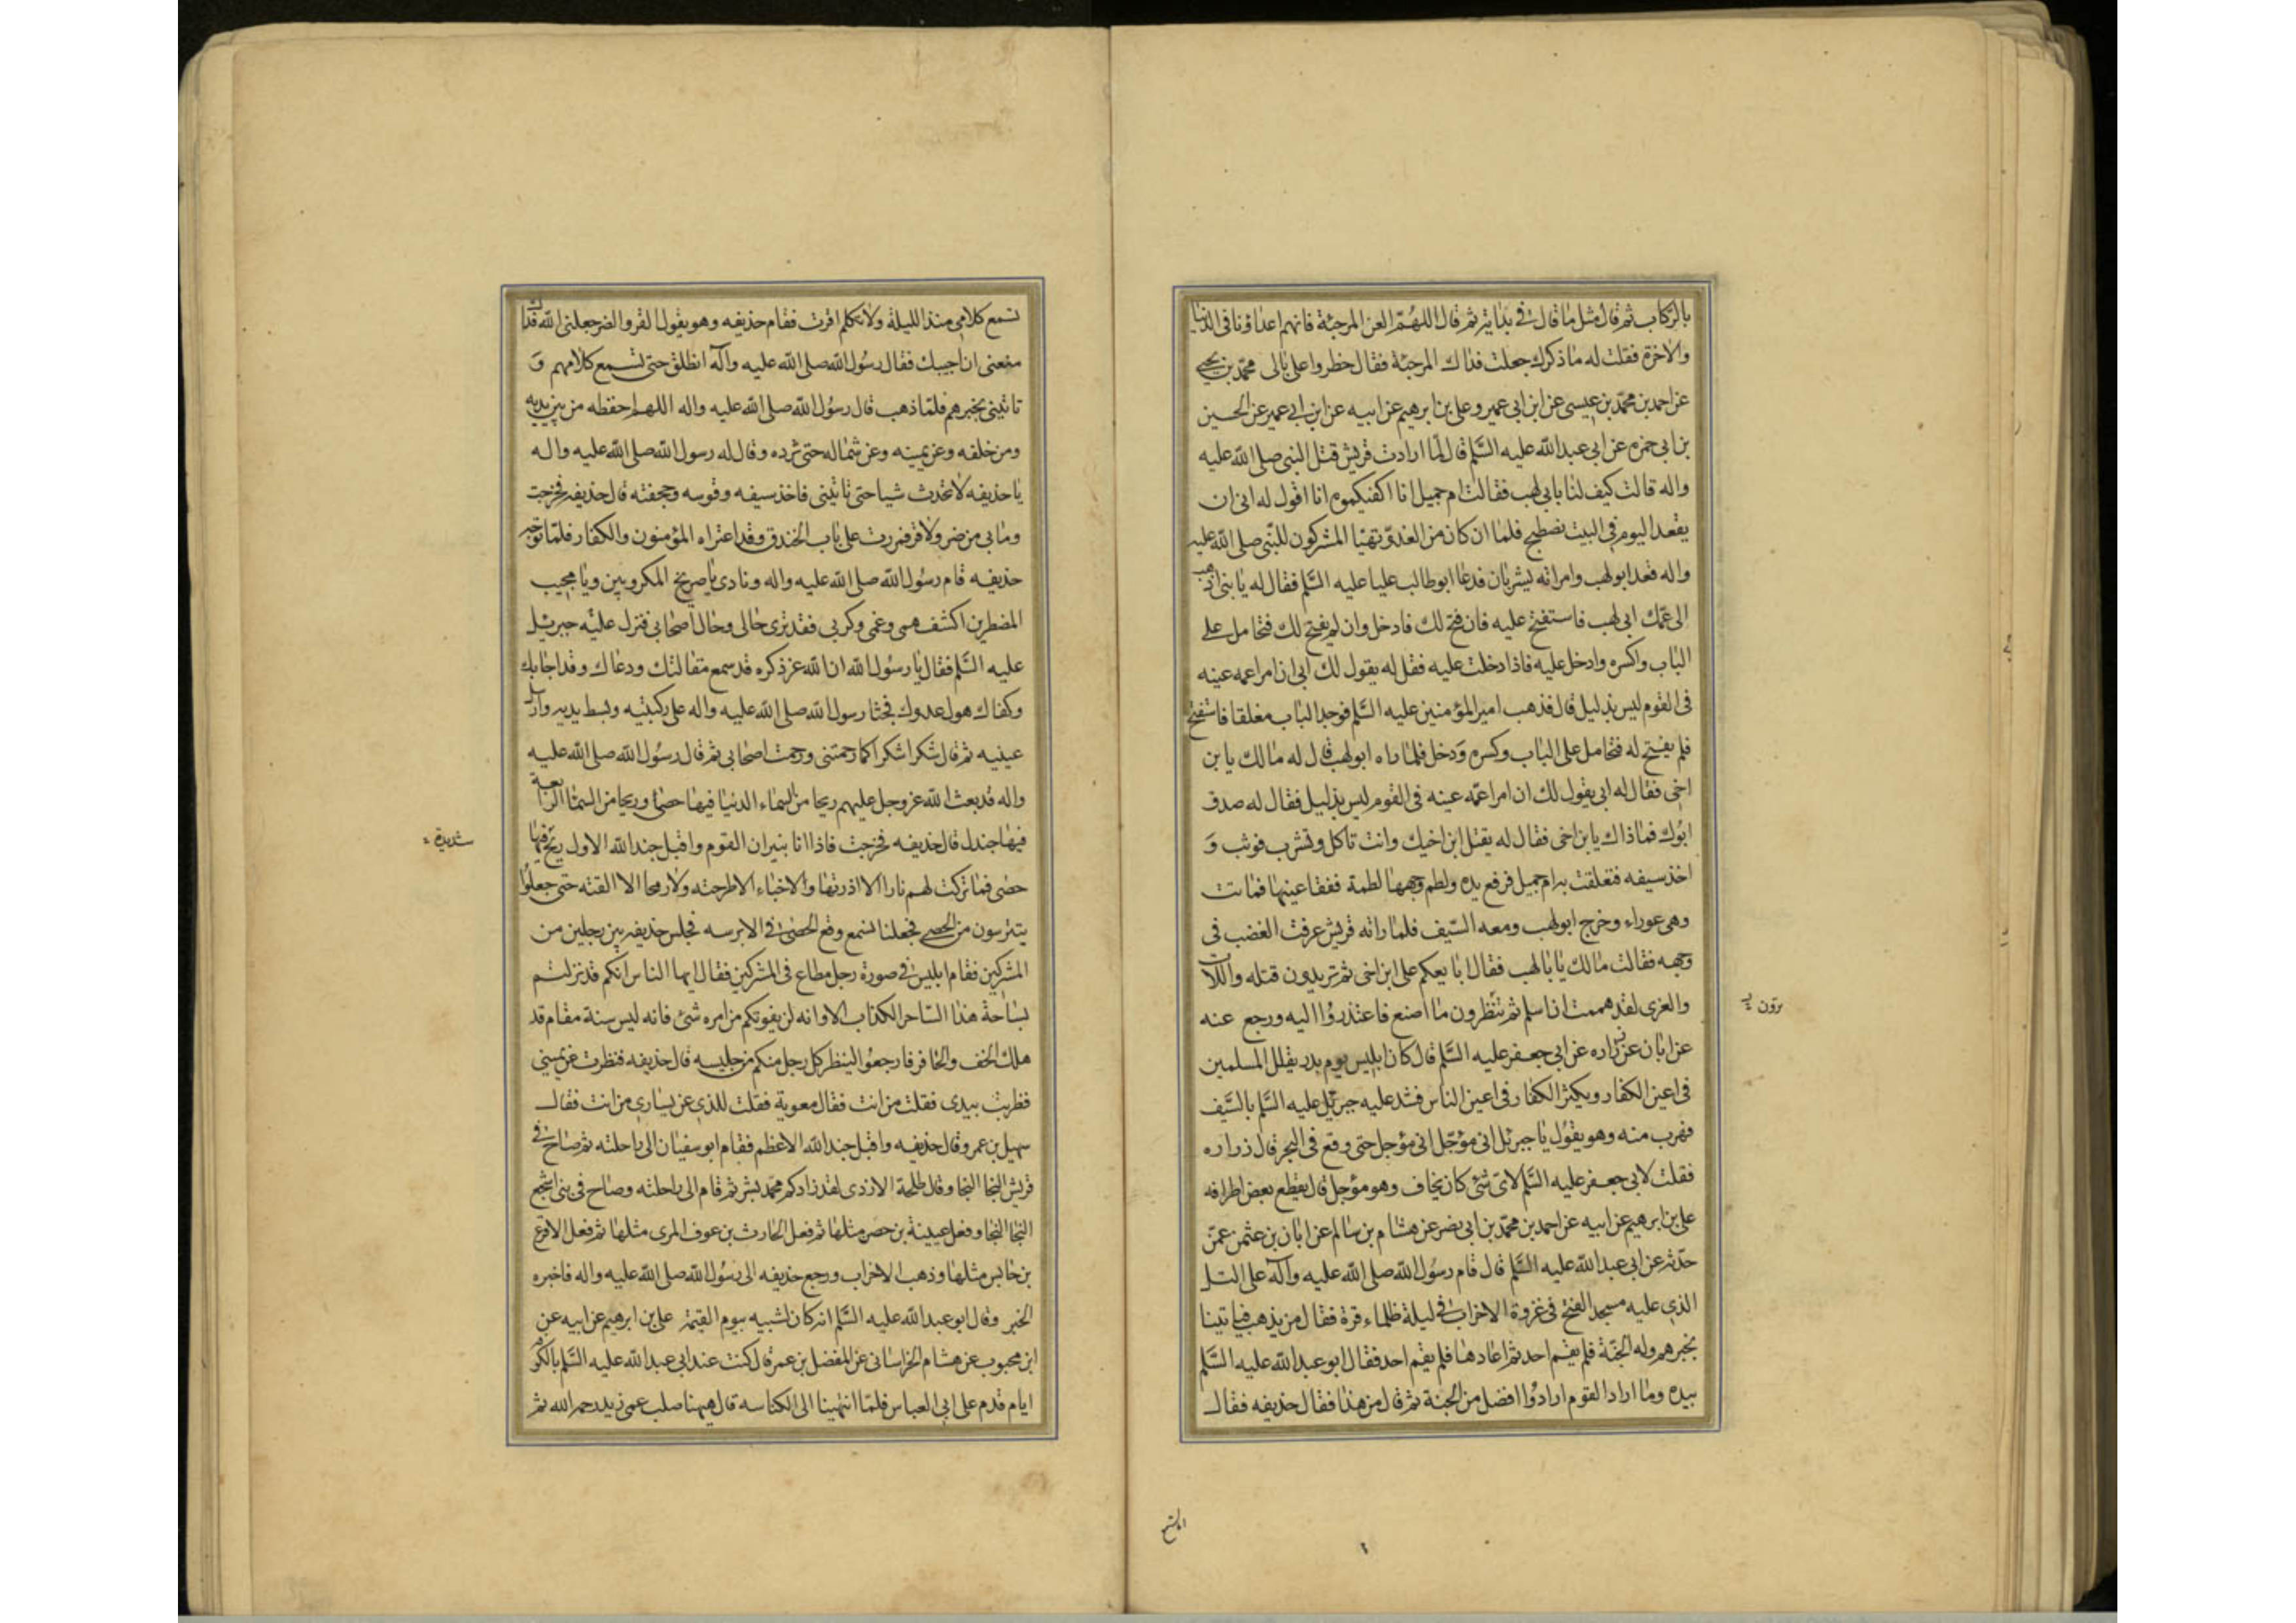 بالركاب ثم قال مثل ما قال في بدايته ثم قال اللهم العن المرجئة فانهم اعداؤنا في الدنيا
والاخرة فقلت له ما ذكرك جعلت فداك المرجئة فقال خطروا على بالى محمد بن يحيى
عن احمد بن محمد بن عيسى عن ابن ابى عمير وعلى بن ابرهيم عن ابيه عن ابن ابي عمير عن الحسين
بن ابى حمزه عن ابى عبد الله عليه السلم قال لما ارادت قريش قتل النبى صلى الله عليه
واله قالت كيف لنا بابى لهب فقالت ام جميل انا اكفيكموه انا اقول له انى ان
يقعد اليوم في البيت نصطبح فلما ان كان من الغد وتهيا المشركون للنبى صلى الله عليه
واله قعد ابو لهب وامراته يشربان فدعا ابو طالب عليا عليه السلم فقال له يا بنى اذهب
الى عمك ابى لهب فاستفتح عليه فان فتح لك فادخل وان لم يفتح لك فتحامل على
الباب واكسره وادخل عليه فاذا دخلت عليه فقل له يقول لك ابى ان امرا عمه عينه
فى القوم ليس بذليل قال فذهب امير المؤمنين عليه السلم فوجد الباب مغلقا فاستفتح
فلم يفتح له فتحامل على الباب وكسره ودخل فلما راه ابو لهب قال له مالك يا بن
اخى فقال له ابى يقول لك ان امرا عمه عينه فى القوم ليس بذليل فقال له صدق
ابوك فما ذاك يا بن اخى فقال له يقتل ابن اخيك وانت تاكل وتشرب فوثب و
اخذ سيفه فتعلقت به ام جميل فرفع يده ولطم وجهها لطمة ففقا عينها فماتت
وهى عوراء وخرج ابو لهب ومعه السيف فلما راته قريش عرفت الغضب فى
وجهه فقالت مالك يا با لهب فقال ابايعكم على ابن اخى ثم تريدون قتله واللات
والعزى لقد هممت ان اسلم ثم تنظرون ما اصنع فاعتذروا اليه ورجع عنه
عن ابان عن زراره عن ابى جعفر عليه السلم قال كان ابليس يوم بدر يقلل المسلمين
فى اعين الكفار ويكثر الكفار فى اعين الناس فشد عليه جبرئيل عليه السلم بالسيف
فهرب منه وهو يقول يا جبرئيل انى مؤجل انى مؤجل حتى وقع فى البحر قال زراره
فقلت لابى جعفر عليه السلم لاى شئ كان يخاف وهو مؤجل قال يقطع بعض اطرافه
على بن ابرهيم عن ابيه عن احمد بن محمد بن ابى نصر عن هشام بن سالم عن ابان بن عثمن عمن
حدثه عن ابى عبد الله عليه السلم قال قام رسول الله صلى الله عليه وآله على التل
الذى عليه مسجد الفتح فى غزوة الاحزاب فى ليلة ظلماء قرة فقال من يذهب فياتينا
بخبرهم وله الجنة فلم يقم احد ثم اعادها فلم يقم احد فقال ابو عبد الله عليه السلم
بيده وما اراد القوم ارادوا افضل من الجنة ثم قال من هذا فقال حذيفه فقال
ترون
تسمع كلامى منذ الليلة ولا تكلم اقرت فقام حذيفه وهو يقول القر والضر جعلنى الله فداك
منعنى ان اجيبك فقال رسول الله صلى الله عليه وآله انطلق حتى تسمع كلامهم و
تاتينى بخبرهم فلما ذهب قال رسول الله صلى الله عليه واله اللهم احفظه من بين يديه
ومن خلفه وعن يمينه وعن شماله حتى ترده وقال له رسول الله صلى الله عليه واله
يا حذيفه لا تحدث شيا حتى تاتينى فاخذ سيفه وقوسه وحجفته قال حذيفه فخرجت
وما بى من ضر ولا قر فمررت على باب الخندق وقد اعتراه المؤمنون والكفار فلما توجه
حذيفه قام رسول الله صلى الله عليه واله ونادى يا صريخ المكروبين ويا مجيب
المضطرين اكشف همى وغمى وكربى فقد ترى حالى وحال اصحابى فنزل عليه جبرئيل
عليه السلم فقال يا رسول الله ان الله عز ذكره قد سمع مقالتك ودعاك وقد اجابك
وكفاك هول عدوك فجثا رسول الله صلى الله عليه واله على ركبتيه وبسط يديه وارسل
عينيه ثم قال شكرا شكرا كما رحمتنى ورحمت اصحابى ثم قال رسول الله صلى الله عليه
واله قد بعث الله عز وجل عليهم ريحا من السماء الدنيا فيها حصا وريحا من السما الرابعة
فيها جندل قال حذيفه فخرجت فاذا انا بنيران القوم واقبل جند الله الاول ريح فيها
شديدة
حصى فما تركت لهم نارا الا اذرتها ولا خباء الا طرحته ولا رمحا الا القته حتى جعلوا
يتترسون من الحصى فجعلنا نسمع وقع الحصى فى الاترسه فجلس حذيفه بين رجلين من
المشركين فقام ابليس فى صورة رجل مطاع فى المشركين فقال ايها الناس انكم قد نزلتم
بساحة هذا الساحر الكذاب الا وانه لن يفوتكم من امره شئ فانه ليس سنة مقام قد
هلك الخف والحافر فارجعوا لينظر كل رجل منكم من جليسه قال حذيفه فنظرت عن يمينى
فضربت بيدى فقلت من انت فقال معوية فقلت للذى عن يسارى من انت فقال
سهيل بن عمرو قال حذيفه واقبل جند الله الاعظم فقام ابو سفيان الى راحلته ثم صاح فى
قريش النجا النجا وقال طلحة الازدى لقد زادكم محمد بشر ثم قام الى راحلته وصاح فى بنى اشجع
النجا النجا وفعل عيينة بن حصن مثلها ثم فعل الحارث بن عوف المرى مثلها ثم فعل الاقرع
بن حابس مثلها وذهب الاحزاب ورجع حذيفه الى رسول الله صلى الله عليه واله فاخبره
الخبر وقال ابو عبد الله عليه السلم انه كان لشبيه بيوم القيمة على بن ابرهيم عن ابيه عن
ابن محبوب عن هشام الخراسانى عن المفضل بن عمر قال كنت عند ابى عبد الله عليه السلم بالكوفة
ايام قدم على ابى العباس فلما انتهينا الى الكناسه قال هيهنا صلب عمى زيد رحمه الله ثم